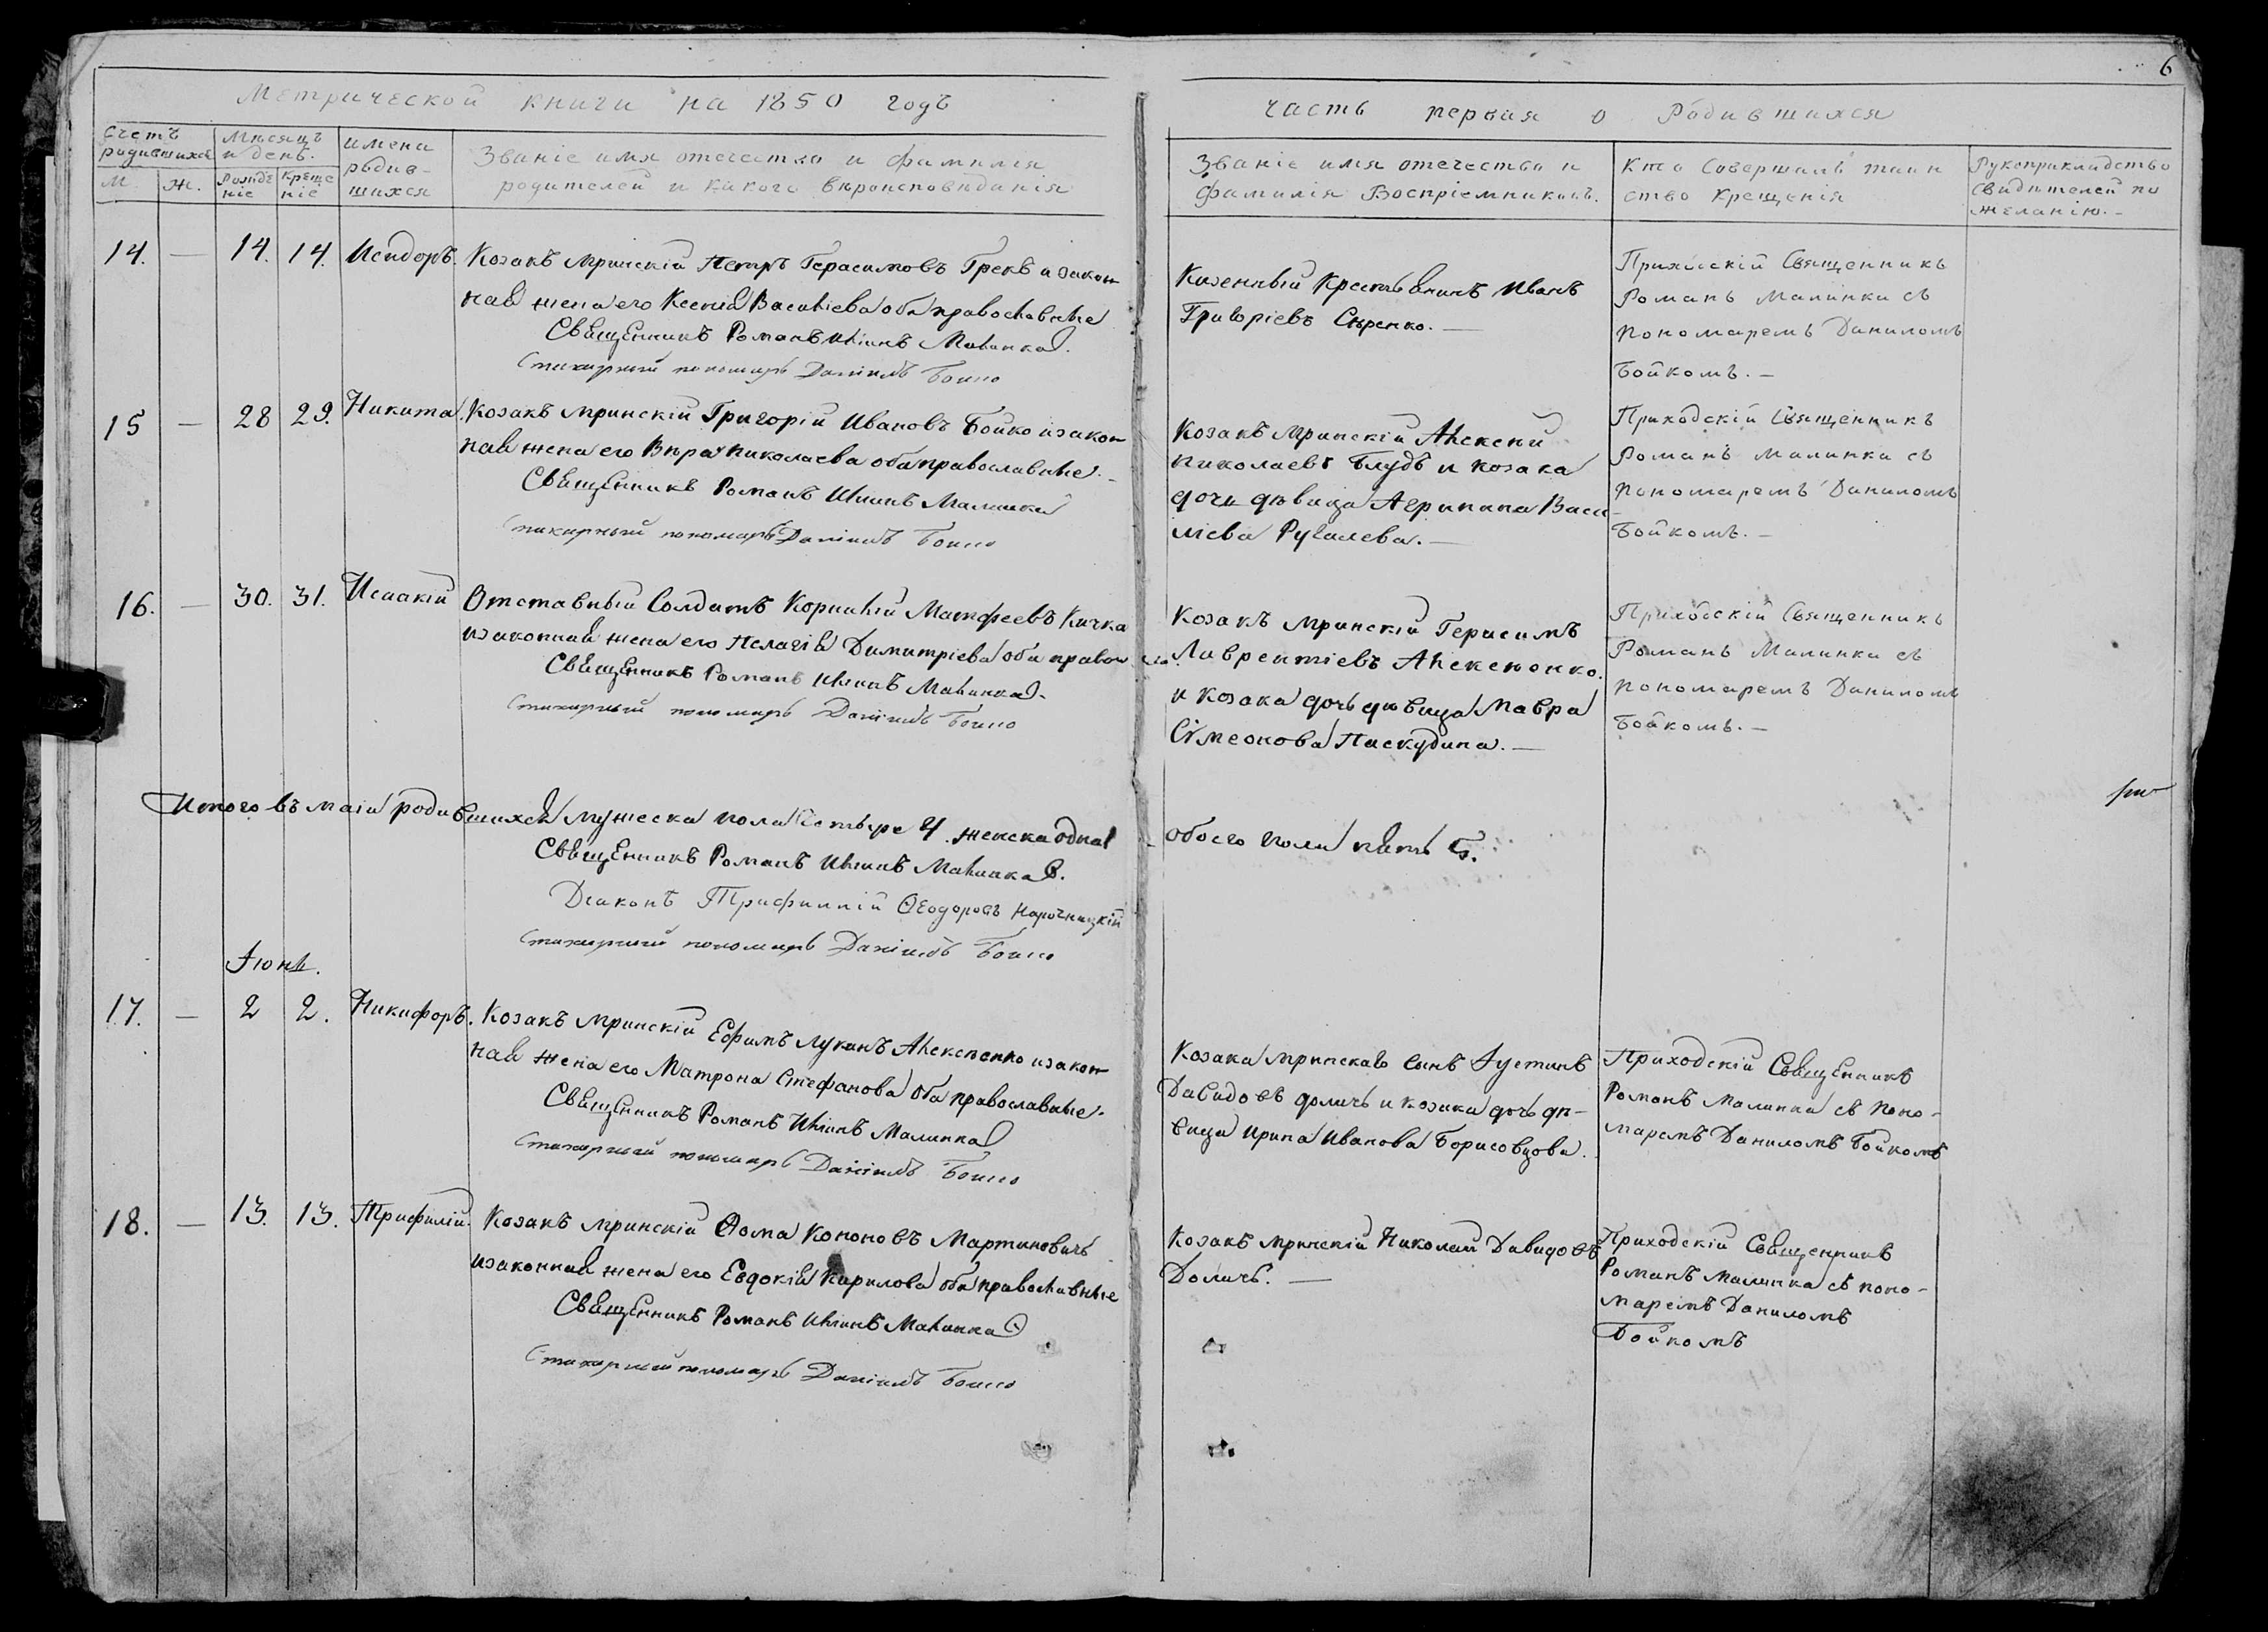 6
Метрической книги на 1850 годъ
часть первая о Родившихся
Счетъ родившихся
М. Ж.
Мѣсяцъ и день.
Рождение Крещение
имена родив-
шихся
Званіе имя отечество и фамилія
родителей и какого вѣроисповѣданія
Званіе имя отечество и
фамилія Воспріемниковъ.
Кто Совершалъ таин
ство Крещенія
Рукоприкладство
свидѣтелей по
желанію.
14. — 14. 14. Исидоръ. Козакъ мринскій Петръ Герасимовъ Грекъ и закон
ная жена его Ксенія Василіева оба православные
Священникъ Романъ Иліинъ Малинка.
Стихарный пономарь Даніилъ Бойко
Казенный Крестьянинъ Иванъ
Григоріевъ Сѣренко. —
Приходскій Священникъ
Романъ Малинка съ
пономаремъ Даниломъ
Бойкомъ. —
15 — 28 29. Никита. Козакъ мринскій Григорій Ивановъ Бойко и закон
ная жена его Вѣра Николаева оба православные. —
Священникъ Романъ Иліинъ Малинка
Стихарный пономарь Даніилъ Бойко
Козакъ мринскій Алексѣй
Николаевъ Блудъ и козака
дочь дѣвица Агрипина Васи
ліева Ругалева. —
Приходскій Священникъ
Романъ Малинка съ
пономаремъ Даниломъ
Бойкомъ. —
16. — 30. 31. Исаакій Отставный Солдатъ Корнилій Матфеевъ Кичка
и законная жена его Пелагія Димитріева оба правосл
Священникъ Романъ Иліинъ Малинка.
Стихарный пономарь Даніилъ Бойко
Козакъ мринскій Герасимъ
Лаврентіевъ Алексѣенко.
и козака дочь дѣвица Мавра
Сімеонова Паскудина. —
Приходскій Священникъ
Романъ Малинка съ
пономаремъ Даниломъ
Бойкомъ. —
Итого въ маіи родившихся мужеска пола Четыре 4. женска одна 1
обоего пола пять 5.
Священникъ Романъ Иліинъ Малинка.
Діаконъ Трифиллій Ѳеодоровъ
Стихарный пономарь Даніилъ Бойко
Іюнь.
17. — 2 2. Никифоръ. Козакъ мринскій Ефимъ Лукинъ Алексѣенко и закон
ная жена его Матрона Стефанова оба православные.
Священникъ Романъ Иліинъ Малинка
Стихарный пономарь Даніилъ Бойко
Козака мринскаго сынъ Іустинъ
Давидовъ Доличъ и козака дочь дѣ-
вица Ирина Иванова Борисовцова.
Приходскій Священникъ
Романъ Малинка съ поно-
маремъ Даниломъ Бойкомъ
18. — 13. 13. Трифилій. Козакъ мринскій Ѳома Кононовъ Мартиновичъ
и законная жена его Евдокія Кирилова оба православные
Священникъ Романъ Иліинъ Малинка
Стихарный пономарь Даніилъ Бойко
Козакъ мринскій Николай Давидовъ
Доличъ. —
Приходскій Священникъ
Романъ Малинка съ поно-
маремъ Даниломъ
Бойкомъ